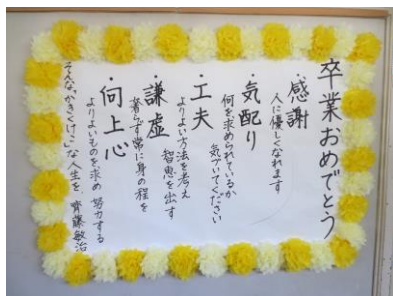 卒業おめでとう
・感謝
人に優しくなれます
・気配り
何を求められているか
気づいてください
・工夫
よりよい方法を考え
智恵を出す
・謙虚
奢らず常に身の程を
・向上心
よりよいものを求め 努力する
そんな、かきくけこ、な人生を 齊藤敏治